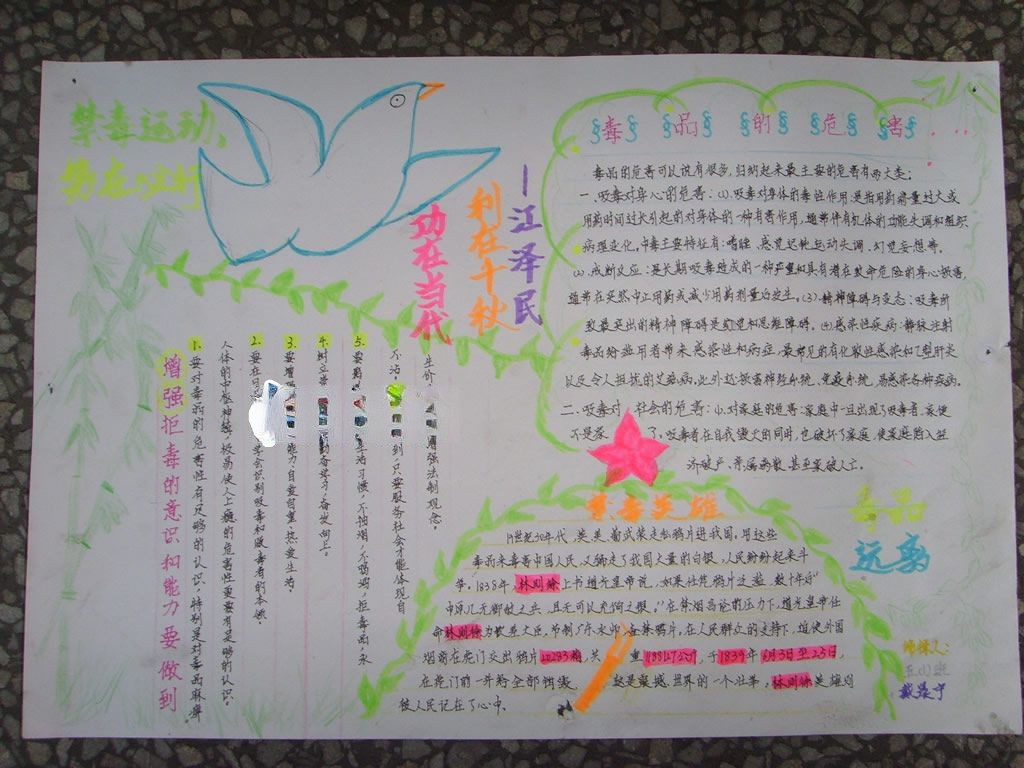 禁毒运动，
势在必行
功在当代
利在千秋
—江泽民
§毒§ §品§ §的§ §危§ §害§...
毒品的危害可以说有很多，归纳起来最主要的危害有两大类：
一、吸毒对身心的危害：(1).吸毒对身体的毒性作用是指用药剂量过大或
用药时间过长引起的对身体的一种有害作用，通常伴有机体的功能失调和组织
病理变化，中毒主要特征有：嗜睡、感觉迟钝运动失调、幻觉妄想等。
(2).戒断反应：是长期吸毒造成的一种严重和具有潜在致命危险的身心损害，
通常在突然中止用药或减少用药剂量后发生。(3).精神障碍与变态：吸毒所
致最突出的精神障碍是幻觉和思维障碍。(4)感染性疾病：静脉注射
毒品给滥用者带来感染性和病症，最常见的有化脓性感染和乙型肝炎
以及令人担忧的艾滋病，此外还损害神经系统、免疫系统，易感染各种疾病。
二、吸毒对社会的危害：(1).对家庭的危害：家庭中一旦出现了吸毒者，家便
不是家了，吸毒者在自我毁灭的同时，也破坏了家庭，使家庭陷入经
济破产、亲属离散甚至家破人亡。
增强拒毒的意识和能力要做到
1.要对毒品的危害性有足够的认识，特别是对毒品麻痹
人体的中枢神经，极易使人上瘾的危害性更要有足够的认识。
2.要在可 学会识别吸毒和贩毒者的本领。
3.要增 能力自爱自重，热爱生活。
4.树立崇 勤奋学习，奋发向上。
5.要 生活习惯，不抽烟，不喝酒，拒毒品，永
不沾。 到只要服务社会才能体现自
生价 增强法制观念。
禁毒英雄
19世纪30年代，英、美、葡武装走私鸦片进我国，用这些
毒品来毒害中国人民，又掠走了我国大量的白银，人民纷纷起来斗
争。1838年，林则徐上书道光皇帝说，如果任凭鸦片泛滥，数十年后"
中原几无御敌之兵，且无可以充饷之银。"在禁烟舆论的压力下，道光皇帝任
命林则徐为钦差大臣，节制广东水师，查禁鸦片，在人民群众的支持下，迫使外国
烟商在虎门交出鸦片20283箱，共 重1188127公斤，于1839年6月3日至25日，
在虎门前一并将全部销毁。 这是震撼世界的一个壮举，林则徐英雄则
被人民记在了心中。
毒品
远离
编辑人：